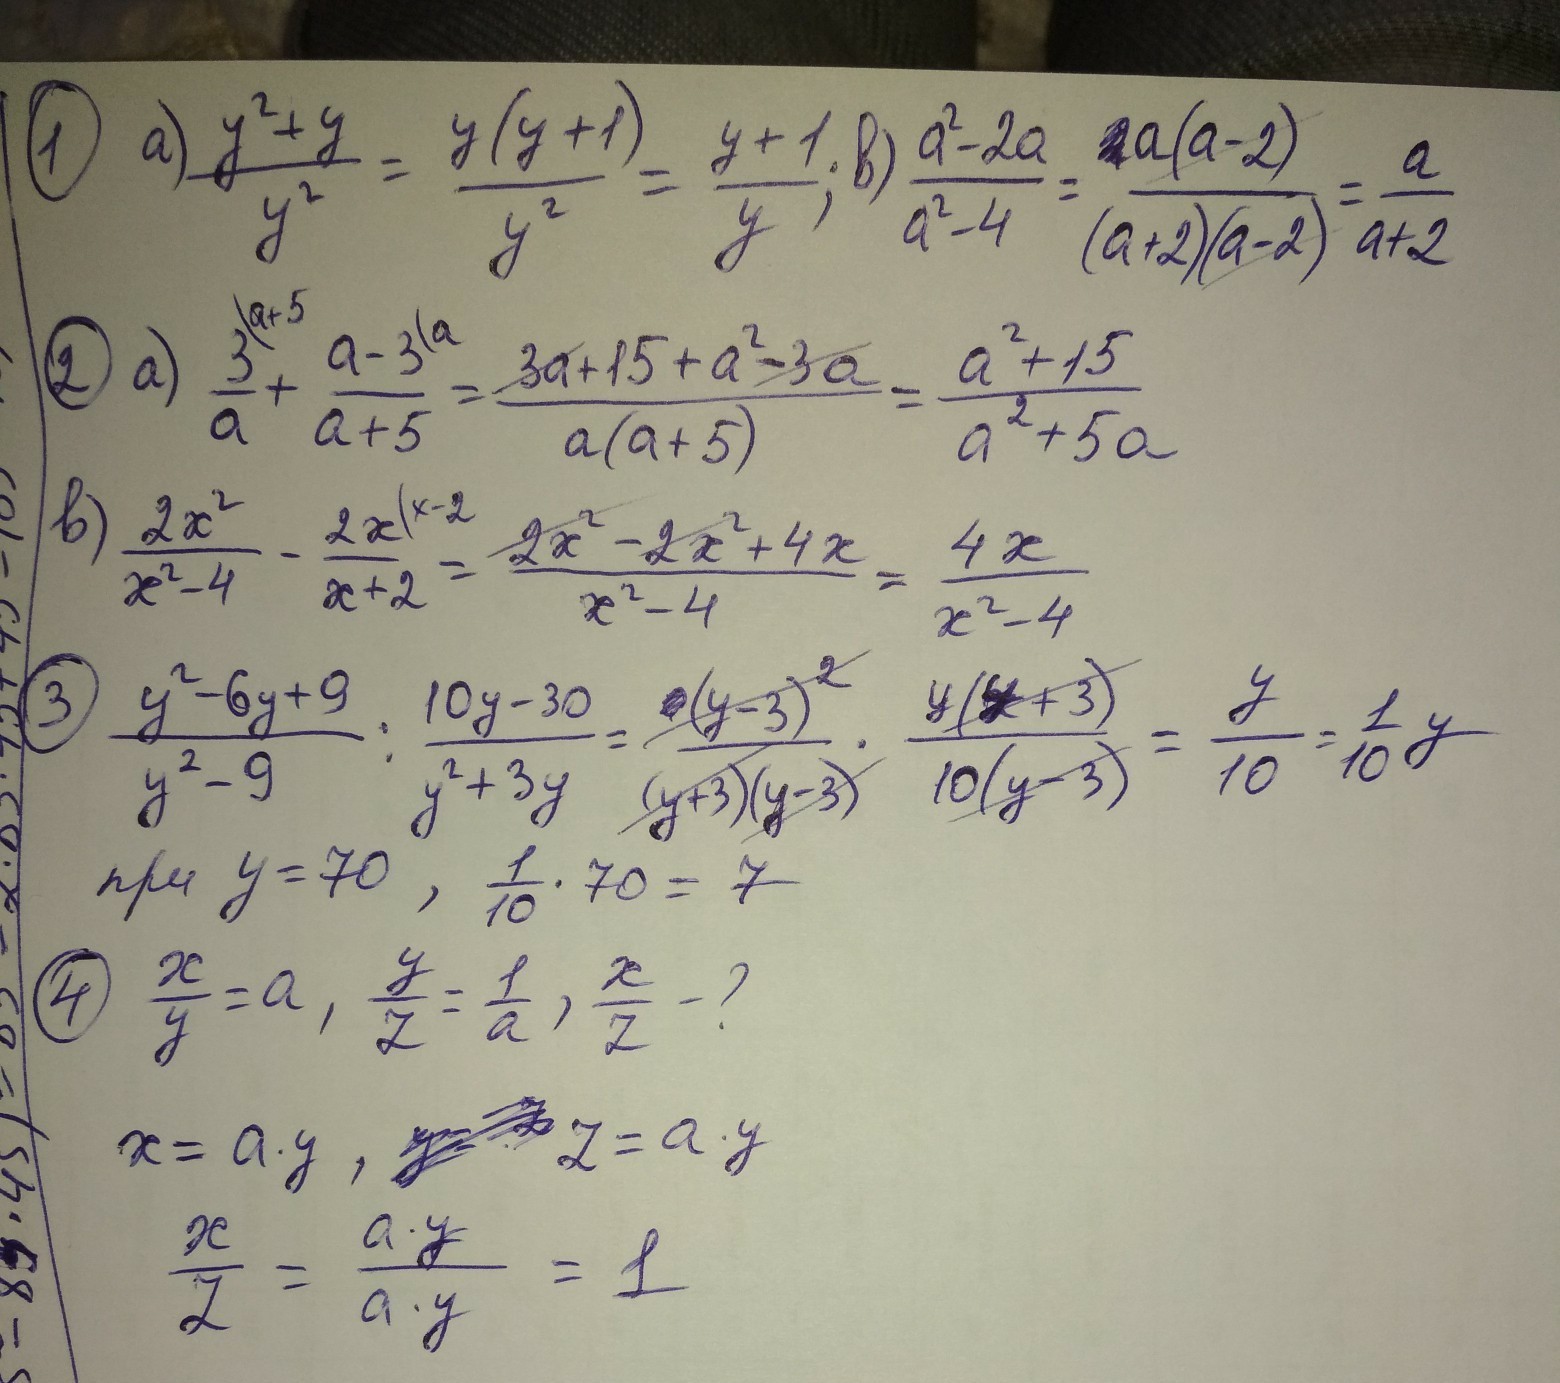 1 а) y²+y/y² = y(y+1)/y² = y+1/y; в) a²-2a/a²-4 = a(a-2)/(a+2)(a-2) = a/a+2
2 а) 3(a+5/a + a-3(a/a+5 = 3a+15+a²-3a/a(a+5) = a²+15/a²+5a
в) 2x²/x²-4 - 2x(x-2/x+2 = 2x²-2x²+4x/x²-4 = 4x/x²-4
3 y²-6y+9/y²-9 : 10y-30/y²+3y = (y-3)²/(y+3)(y-3) · y(y+3)/10(y-3) = y/10 = 1/10 y
при y=70, 1/10 · 70 = 7
4 x/y = a, y/z = 1/a, x/z - ?
x = a·y, z = a·y
x/z = a·y/a·y = 1